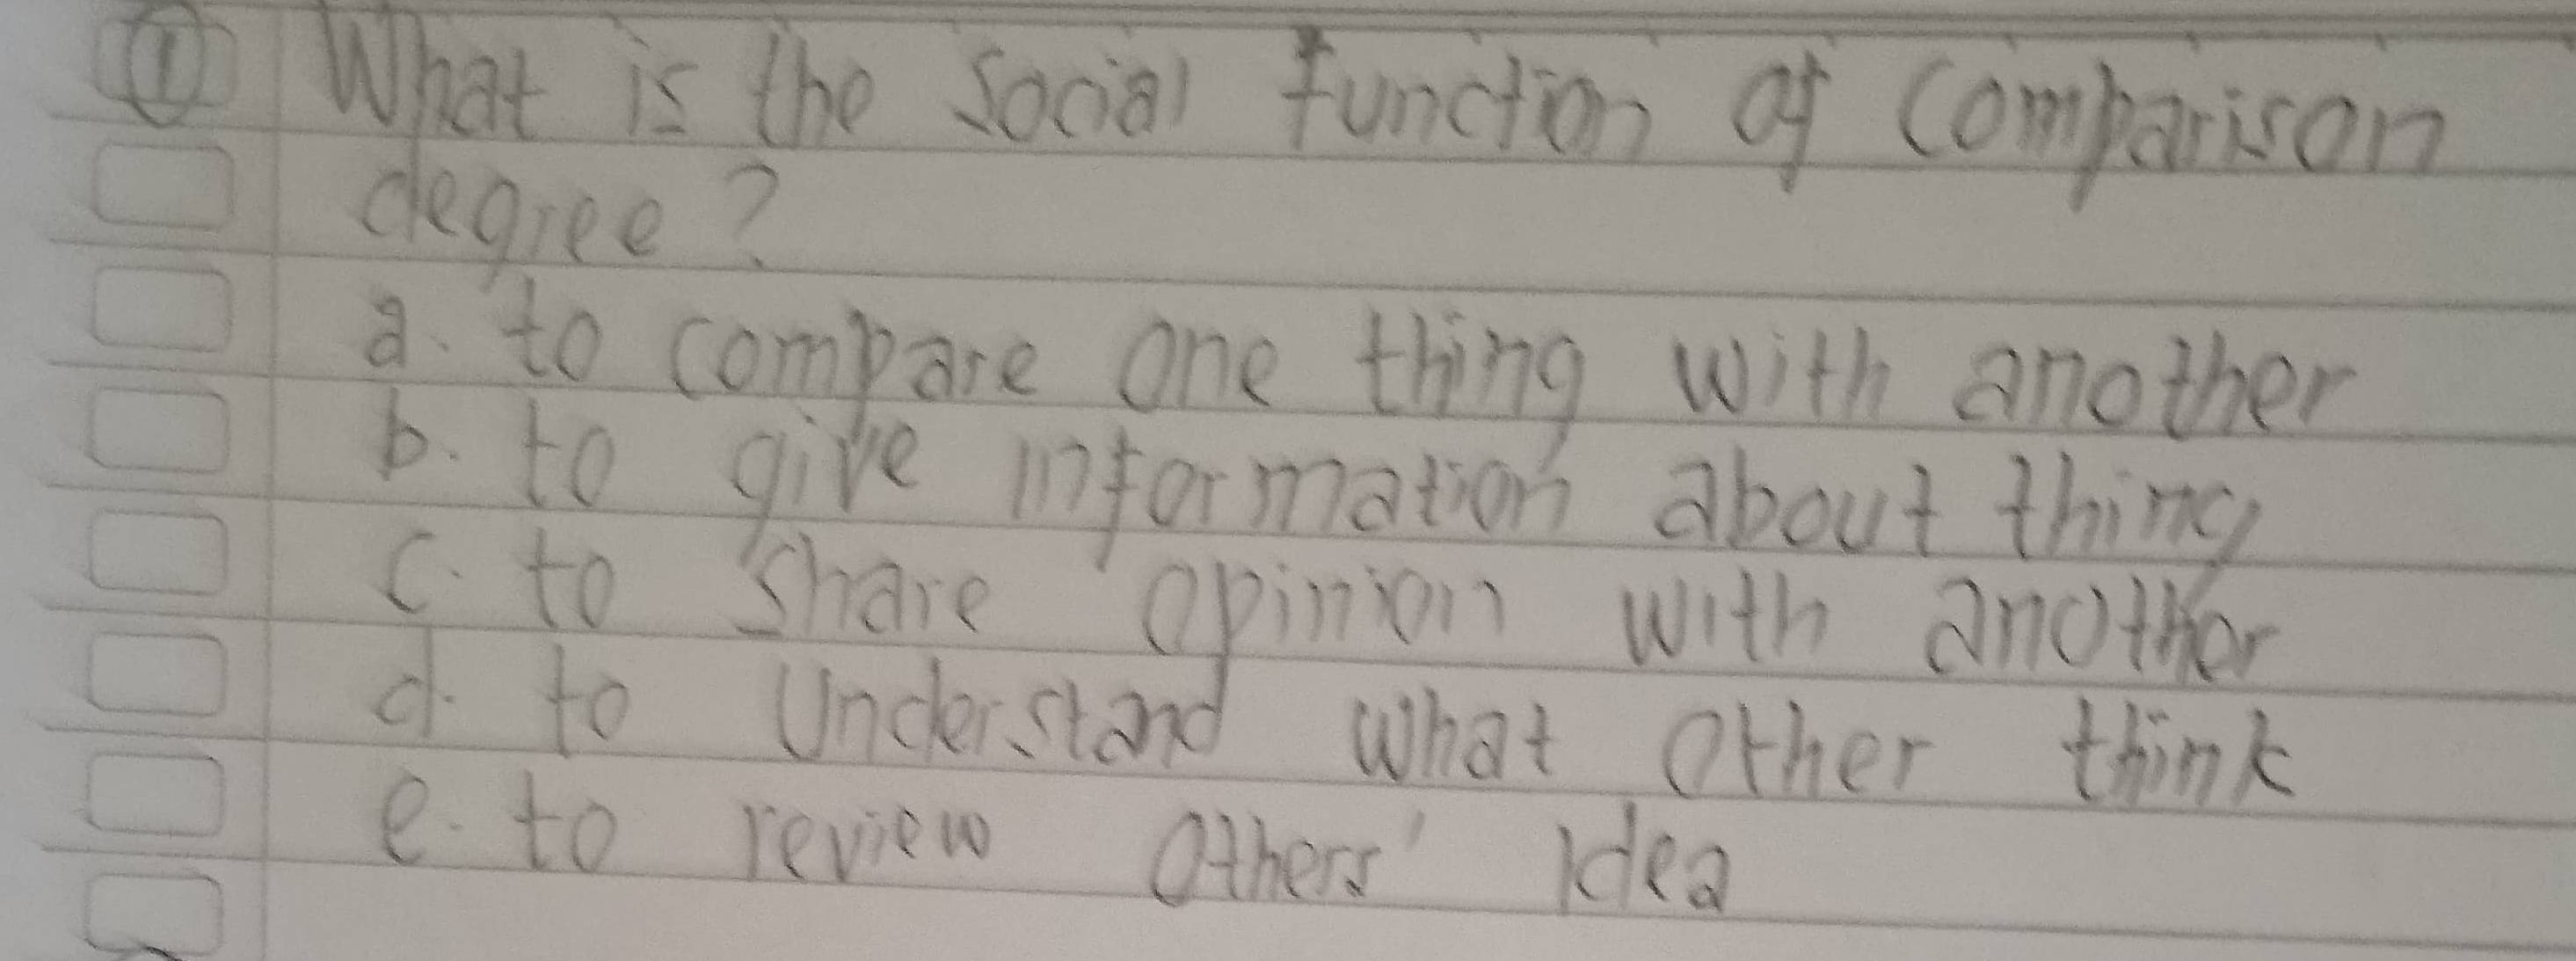 ① What is the Social function of Comparison
degree?
a. to compare one thing with another
b. to give information about thing
c. to share opinion with another
d. to Understand what other think
e. to review others' idea